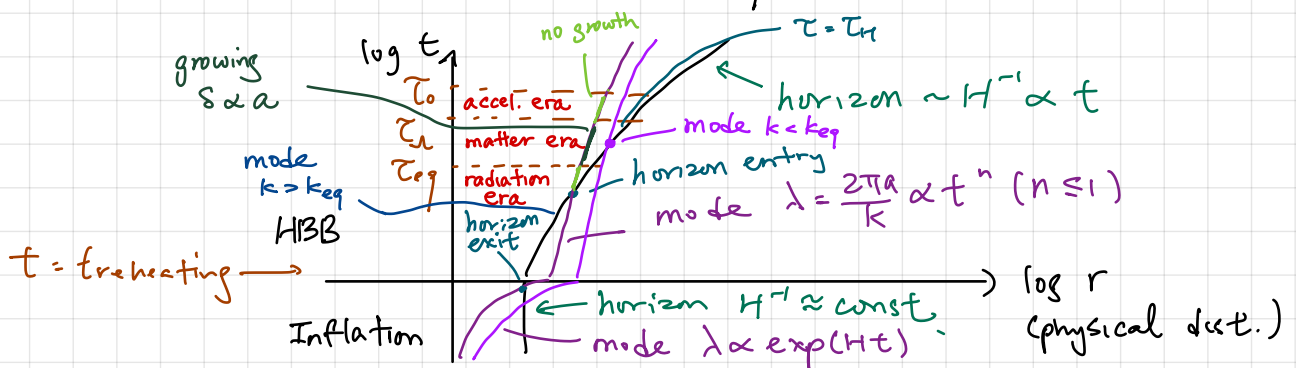 no growth
τ = τ_H
log t
growing
δ ∝ a
τ_0
accel. era
horizon ~ H^-1 ∝ t
τ_Λ
matter era
mode k < k_eq
mode
k > k_eq
τ_eq
radiation
era
horizon entry
mode λ = 2πa/k ∝ t^n (n ≤ 1)
HBB
horizon
exit
t = t reheating
log r
(physical dist.)
Inflation
horizon H^-1 ≈ const.
mode λ ∝ exp(Ht)